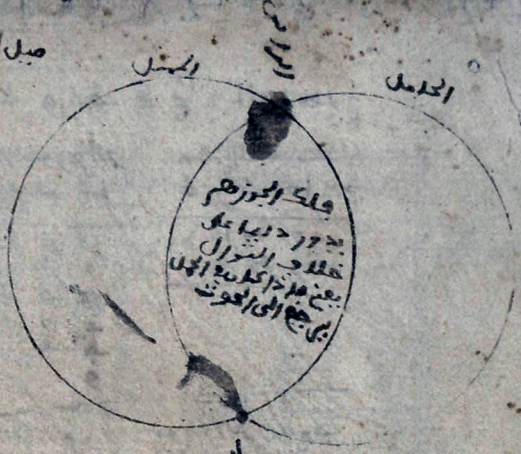 الممثل
الحامل
فلك الجوزهر
يدور دايما على
خلاف التوالى
يعنى اذا كان فى الحمل
يرجع الى الحوت